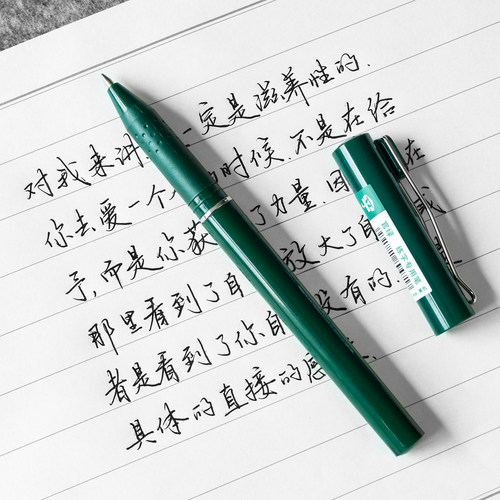 对我来讲 一定是滋养性的.
你去爱一个 的时候.不是在给
予,而是你获 了力量.因 在
那里看到了自 放大了自 或
者是看到了你自 没有的
具体的直接的